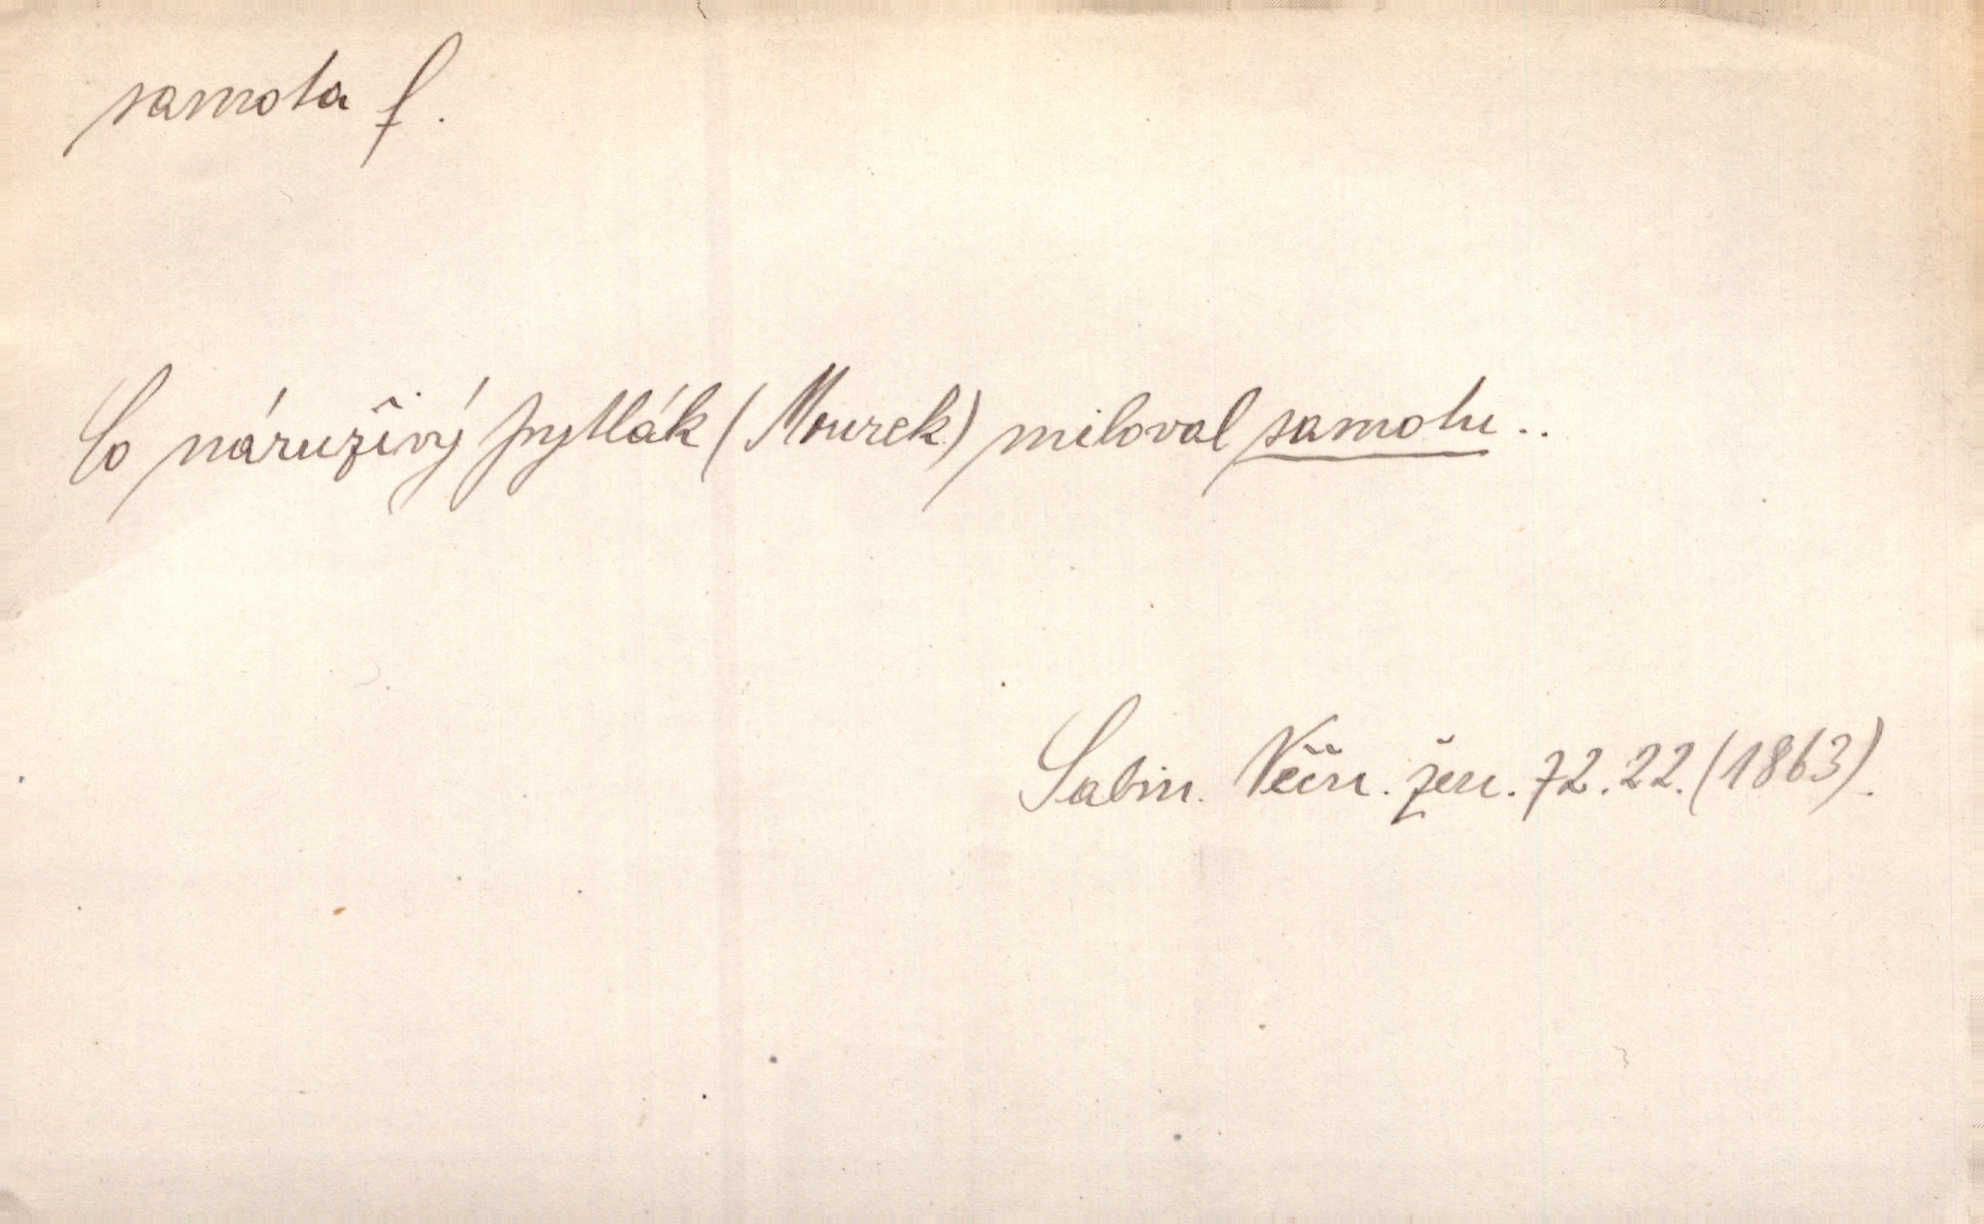 samota f.
Co náruživý pytlák (Mourek) miloval samotu..
Sabin. Věčn. žen. 72.22. (1863).